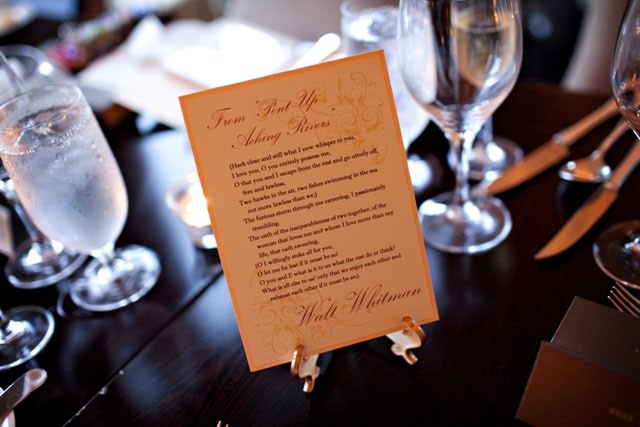 From "Pent Up
Aching Rivers"
(Hark close and still what I now whisper to you,
I love you, O you entirely possess me,
O that you and I escape from the rest and go utterly off,
free and lawless,
Two hawks in the air, two fishes swimming in the sea
not more lawless than we;)
The furious storm through me careering, I passionately
trembling.
The oath of the inseparableness of two together, of the
woman that loves me and whom I love more than my
life, that oath swearing,
(O I willingly stake all for you,
O let me be lost if it must be so!
O you and I! what is it to us what the rest do or think?
What is all else to us? only that we enjoy each other and
exhaust each other if it must be so;)
Walt Whitman